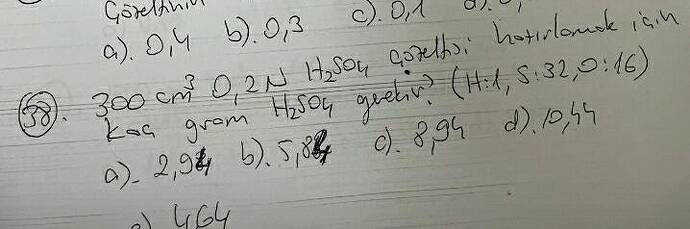 Çözeltinin
a). 0,4 b). 0,3 c). 0,1 d). 0,
38. 300 cm³ 0,2N H₂SO₄ çözeltisi hazırlamak için
kaç gram H₂SO₄ gerekir? (H:1, S:32, O:16)
a). 2,94 b). 5,84 c). 8,94 d). 10,44
e) 4,64